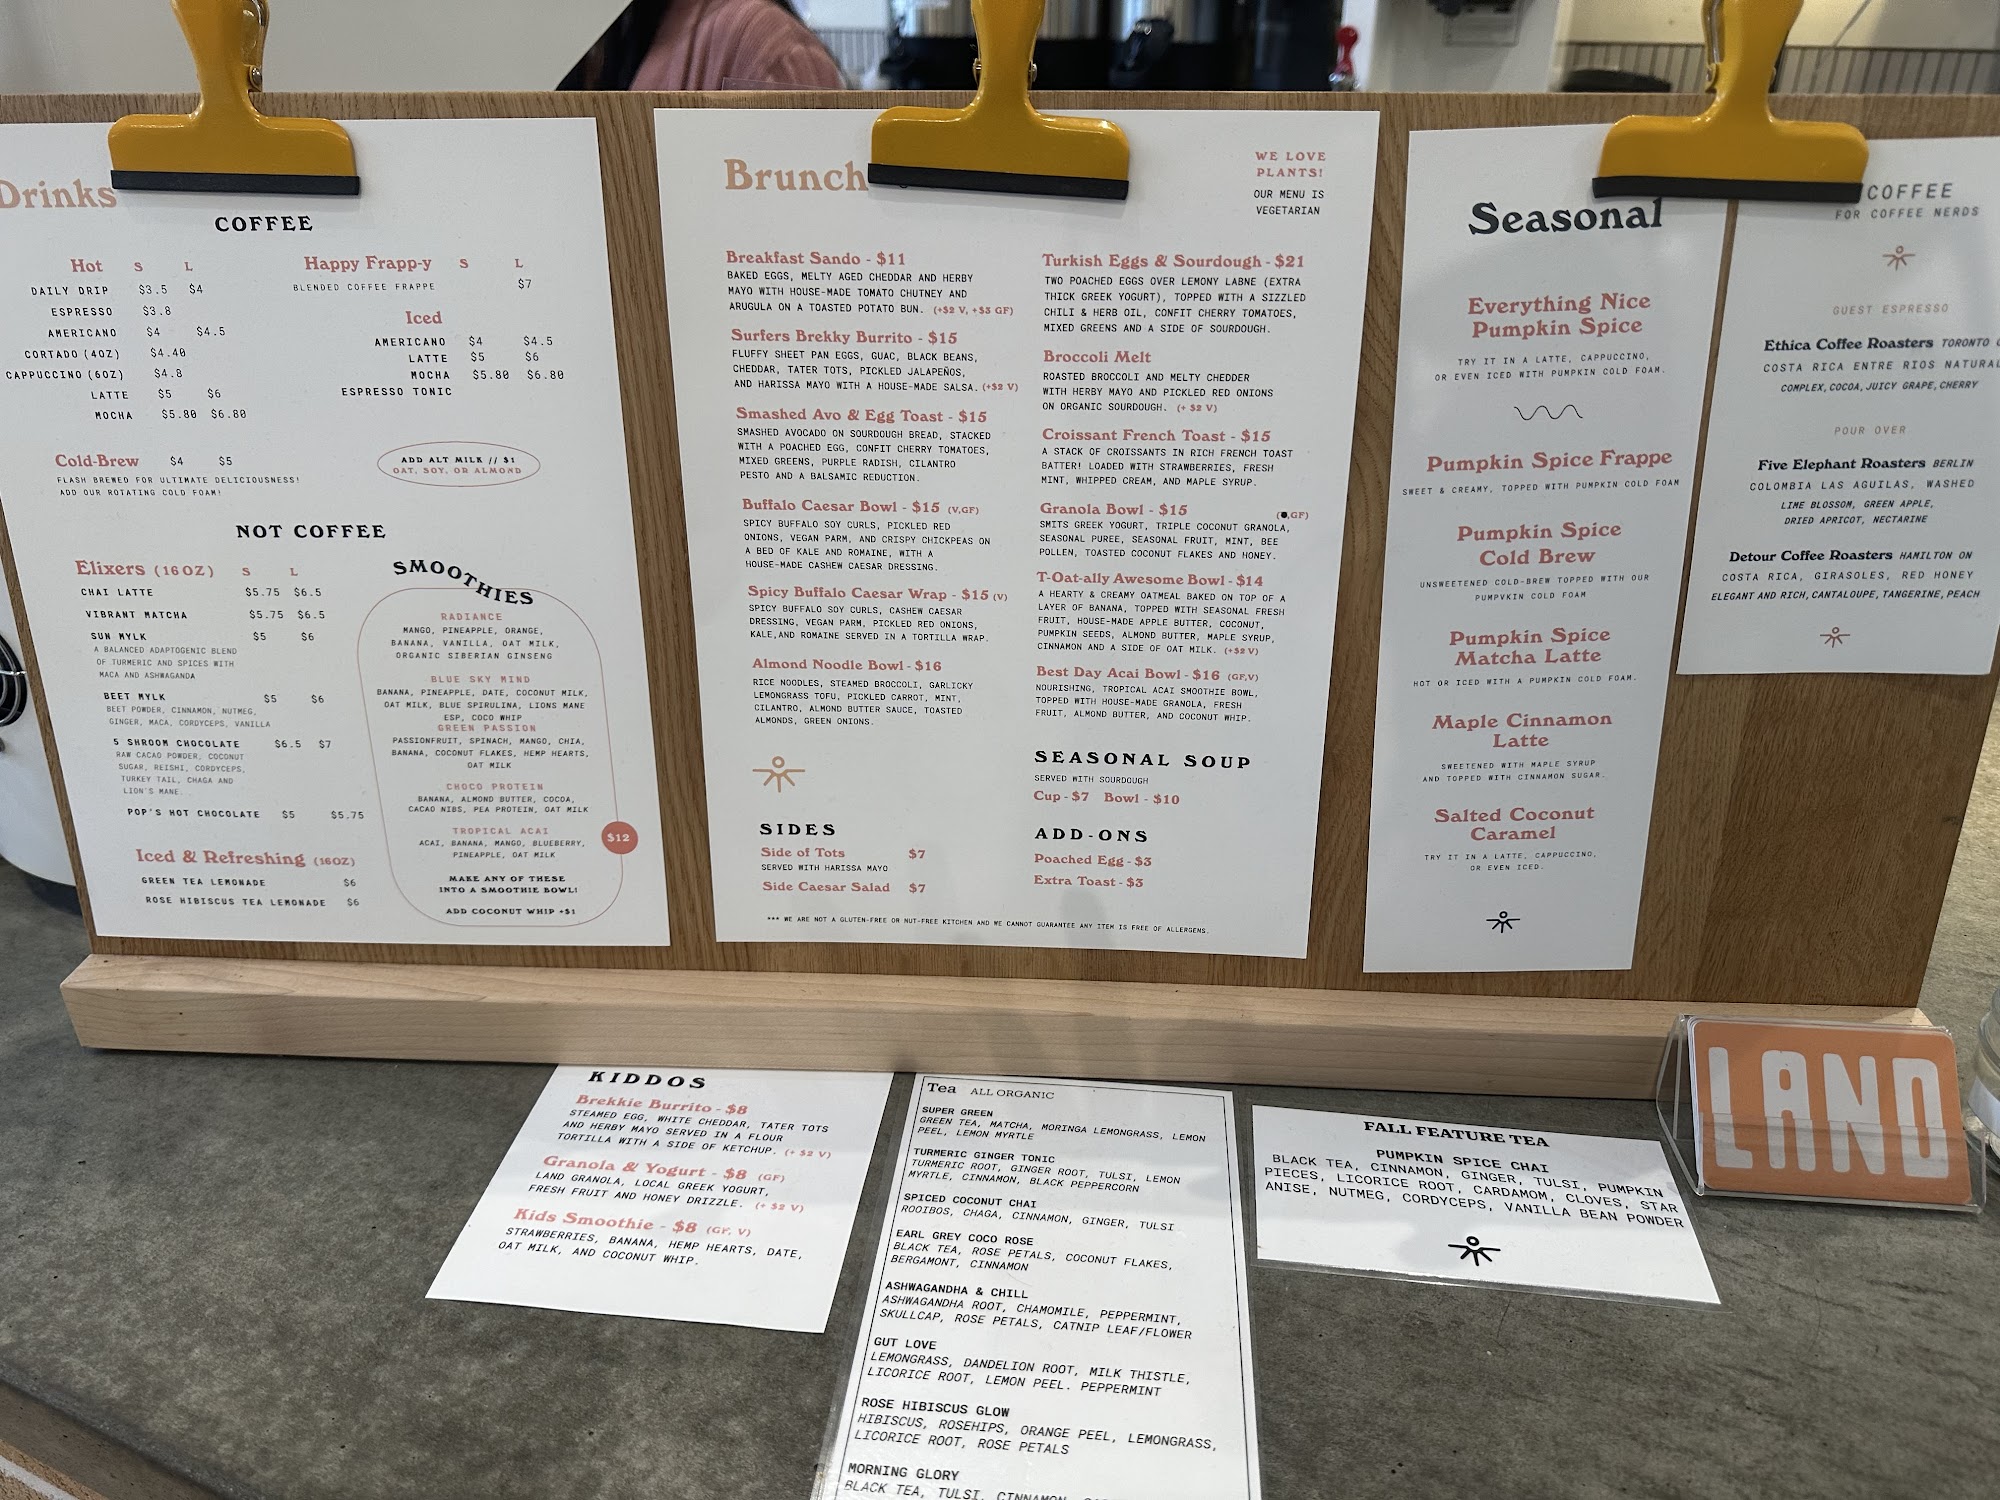 Drinks
COFFEE
Hot S L
DAILY DRIP $3.5 $4
ESPRESSO $3.8
AMERICANO $4 $4.5
CORTADO (4OZ) $4.40
CAPPUCCINO (6OZ) $4.8
LATTE $5 $6
MOCHA $5.80 $6.80
Happy Frapp-y S L
BLENDED COFFEE FRAPPE $7
Iced
AMERICANO $4 $4.5
LATTE $5 $6
MOCHA $5.80 $6.80
ESPRESSO TONIC
Cold-Brew $4 $5
FLASH BREWED FOR ULTIMATE DELICIOUSNESS!
ADD OUR ROTATING COLD FOAM!
ADD ALT MILK // $1
OAT, SOY, OR ALMOND
NOT COFFEE
Elixers (16OZ) S L
CHAI LATTE $5.75 $6.5
VIBRANT MATCHA $5.75 $6.5
SUN MYLK $5 $6
A BALANCED ADAPTOGENIC BLEND
OF TURMERIC AND SPICES WITH
MACA AND ASHWAGANDA
BEET MYLK $5 $6
BEET POWDER, CINNAMON, NUTMEG,
GINGER, MACA, CORDYCEPS, VANILLA
5 SHROOM CHOCOLATE $6.5 $7
RAW CACAO POWDER, COCONUT
SUGAR, REISHI, CORDYCEPS,
TURKEY TAIL, CHAGA AND
LION'S MANE.
POP'S HOT CHOCOLATE $5 $5.75
Iced & Refreshing (16OZ)
GREEN TEA LEMONADE $6
ROSE HIBISCUS TEA LEMONADE $6
SMOOTHIES
RADIANCE
MANGO, PINEAPPLE, ORANGE,
BANANA, VANILLA, OAT MILK,
ORGANIC SIBERIAN GINSENG
BLUE SKY MIND
BANANA, PINEAPPLE, DATE, COCONUT MILK,
OAT MILK, BLUE SPIRULINA, LIONS MANE
ESP, COCO WHIP
GREEN PASSION
PASSIONFRUIT, SPINACH, MANGO, CHIA,
BANANA, COCONUT FLAKES, HEMP HEARTS,
OAT MILK
CHOCO PROTEIN
BANANA, ALMOND BUTTER, COCOA,
CACAO NIBS, PEA PROTEIN, OAT MILK
TROPICAL ACAI
ACAI, BANANA, MANGO, BLUEBERRY,
PINEAPPLE, OAT MILK
$12
MAKE ANY OF THESE
INTO A SMOOTHIE BOWL!
ADD COCONUT WHIP +$1
Brunch
WE LOVE
PLANTS!
OUR MENU IS
VEGETARIAN
Breakfast Sando - $11
BAKED EGGS, MELTY AGED CHEDDAR AND HERBY
MAYO WITH HOUSE-MADE TOMATO CHUTNEY AND
ARUGULA ON A TOASTED POTATO BUN. (+$2 V, +$3 GF)
Surfers Brekky Burrito - $15
FLUFFY SHEET PAN EGGS, GUAC, BLACK BEANS,
CHEDDAR, TATER TOTS, PICKLED JALAPEÑOS,
AND HARISSA MAYO WITH A HOUSE-MADE SALSA. (+$2 V)
Smashed Avo & Egg Toast - $15
SMASHED AVOCADO ON SOURDOUGH BREAD, STACKED
WITH A POACHED EGG, CONFIT CHERRY TOMATOES,
MIXED GREENS, PURPLE RADISH, CILANTRO
PESTO AND A BALSAMIC REDUCTION.
Buffalo Caesar Bowl - $15 (V,GF)
SPICY BUFFALO SOY CURLS, PICKLED RED
ONIONS, VEGAN PARM, AND CRISPY CHICKPEAS ON
A BED OF KALE AND ROMAINE, WITH A
HOUSE-MADE CASHEW CAESAR DRESSING.
Spicy Buffalo Caesar Wrap - $15 (V)
SPICY BUFFALO SOY CURLS, CASHEW CAESAR
DRESSING, VEGAN PARM, PICKLED RED ONIONS,
KALE,AND ROMAINE SERVED IN A TORTILLA WRAP.
Almond Noodle Bowl - $16
RICE NOODLES, STEAMED BROCCOLI, GARLICKY
LEMONGRASS TOFU, PICKLED CARROT, MINT,
CILANTRO, ALMOND BUTTER SAUCE, TOASTED
ALMONDS, GREEN ONIONS.
SIDES
Side of Tots $7
SERVED WITH HARISSA MAYO
Side Caesar Salad $7
Turkish Eggs & Sourdough - $21
TWO POACHED EGGS OVER LEMONY LABNE (EXTRA
THICK GREEK YOGURT), TOPPED WITH A SIZZLED
CHILI & HERB OIL, CONFIT CHERRY TOMATOES,
MIXED GREENS AND A SIDE OF SOURDOUGH.
Broccoli Melt
ROASTED BROCCOLI AND MELTY CHEDDER
WITH HERBY MAYO AND PICKLED RED ONIONS
ON ORGANIC SOURDOUGH. (+ $2 V)
Croissant French Toast - $15
A STACK OF CROISSANTS IN RICH FRENCH TOAST
BATTER! LOADED WITH STRAWBERRIES, FRESH
MINT, WHIPPED CREAM, AND MAPLE SYRUP.
Granola Bowl - $15 ( ,GF)
SMITS GREEK YOGURT, TRIPLE COCONUT GRANOLA,
SEASONAL PUREE, SEASONAL FRUIT, MINT, BEE
POLLEN, TOASTED COCONUT FLAKES AND HONEY.
T-Oat-ally Awesome Bowl - $14
A HEARTY & CREAMY OATMEAL BAKED ON TOP OF A
LAYER OF BANANA, TOPPED WITH SEASONAL FRESH
FRUIT, HOUSE-MADE APPLE BUTTER, COCONUT,
PUMPKIN SEEDS, ALMOND BUTTER, MAPLE SYRUP,
CINNAMON AND A SIDE OF OAT MILK. (+$2 V)
Best Day Acai Bowl - $16 (GF,V)
NOURISHING, TROPICAL ACAI SMOOTHIE BOWL,
TOPPED WITH HOUSE-MADE GRANOLA, FRESH
FRUIT, ALMOND BUTTER, AND COCONUT WHIP.
SEASONAL SOUP
SERVED WITH SOURDOUGH
Cup - $7 Bowl - $10
ADD-ONS
Poached Egg - $3
Extra Toast - $3
*** WE ARE NOT A GLUTEN-FREE OR NUT-FREE KITCHEN AND WE CANNOT GUARANTEE ANY ITEM IS FREE OF ALLERGENS.
Seasonal
Everything Nice
Pumpkin Spice
TRY IT IN A LATTE, CAPPUCCINO,
OR EVEN ICED WITH PUMPKIN COLD FOAM.
Pumpkin Spice Frappe
SWEET & CREAMY, TOPPED WITH PUMPKIN COLD FOAM
Pumpkin Spice
Cold Brew
UNSWEETENED COLD-BREW TOPPED WITH OUR
PUMPVKIN COLD FOAM
Pumpkin Spice
Matcha Latte
HOT OR ICED WITH A PUMPKIN COLD FOAM.
Maple Cinnamon
Latte
SWEETENED WITH MAPLE SYRUP
AND TOPPED WITH CINNAMON SUGAR.
Salted Coconut
Caramel
TRY IT IN A LATTE, CAPPUCCINO,
OR EVEN ICED.
COFFEE
FOR COFFEE NERDS
GUEST ESPRESSO
Ethica Coffee Roasters TORONTO
COSTA RICA ENTRE RIOS NATURAL
COMPLEX, COCOA, JUICY GRAPE, CHERRY
POUR OVER
Five Elephant Roasters BERLIN
COLOMBIA LAS AGUILAS, WASHED
LIME BLOSSOM, GREEN APPLE,
DRIED APRICOT, NECTARINE
Detour Coffee Roasters HAMILTON ON
COSTA RICA, GIRASOLES, RED HONEY
ELEGANT AND RICH, CANTALOUPE, TANGERINE, PEACH
KIDDOS
Brekkie Burrito - $8
STEAMED EGG, WHITE CHEDDAR, TATER TOTS
AND HERBY MAYO SERVED IN A FLOUR
TORTILLA WITH A SIDE OF KETCHUP. (+ $2 V)
Granola & Yogurt - $8 (GF)
LAND GRANOLA, LOCAL GREEK YOGURT,
FRESH FRUIT AND HONEY DRIZZLE. (+ $2 V)
Kids Smoothie - $8 (GF, V)
STRAWBERRIES, BANANA, HEMP HEARTS, DATE,
OAT MILK, AND COCONUT WHIP.
Tea ALL ORGANIC
SUPER GREEN
GREEN TEA, MATCHA, MORINGA LEMONGRASS, LEMON
PEEL, LEMON MYRTLE
TURMERIC GINGER TONIC
TURMERIC ROOT, GINGER ROOT, TULSI, LEMON
MYRTLE, CINNAMON, BLACK PEPPERCORN
SPICED COCONUT CHAI
ROOIBOS, CHAGA, CINNAMON, GINGER, TULSI
EARL GREY COCO ROSE
BLACK TEA, ROSE PETALS, COCONUT FLAKES,
BERGAMONT, CINNAMON
ASHWAGANDHA & CHILL
ASHWAGANDHA ROOT, CHAMOMILE, PEPPERMINT,
SKULLCAP, ROSE PETALS, CATNIP LEAF/FLOWER
GUT LOVE
LEMONGRASS, DANDELION ROOT, MILK THISTLE,
LICORICE ROOT, LEMON PEEL. PEPPERMINT
ROSE HIBISCUS GLOW
HIBISCUS, ROSEHIPS, ORANGE PEEL, LEMONGRASS,
LICORICE ROOT, ROSE PETALS
MORNING GLORY
BLACK TEA, TULSI, CINNAMON,
FALL FEATURE TEA
PUMPKIN SPICE CHAI
BLACK TEA, CINNAMON, GINGER, TULSI, PUMPKIN
PIECES, LICORICE ROOT, CARDAMOM, CLOVES, STAR
ANISE, NUTMEG, CORDYCEPS, VANILLA BEAN POWDER
LAND